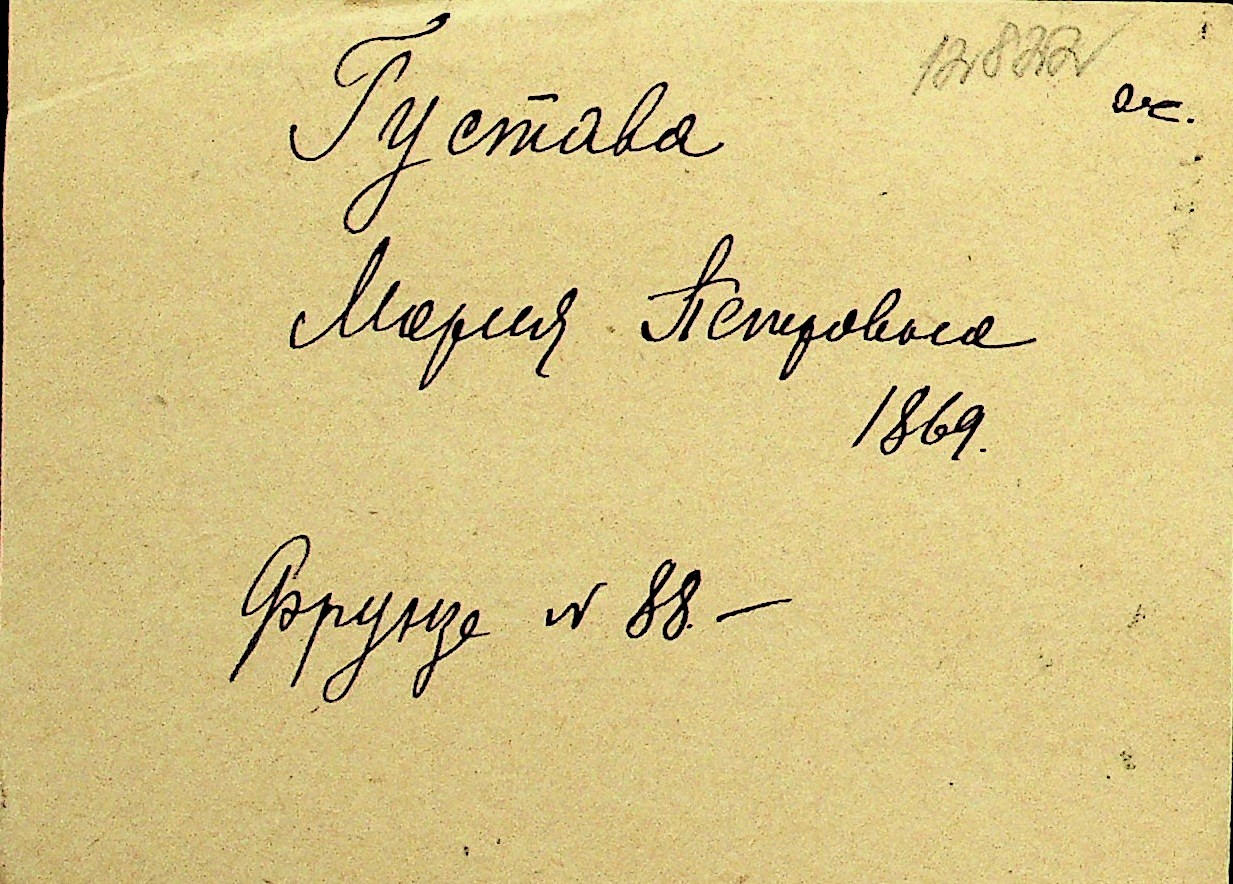 12822
ж.
Густава
Мария Петровна
1869.
Фрунзе № 88. —